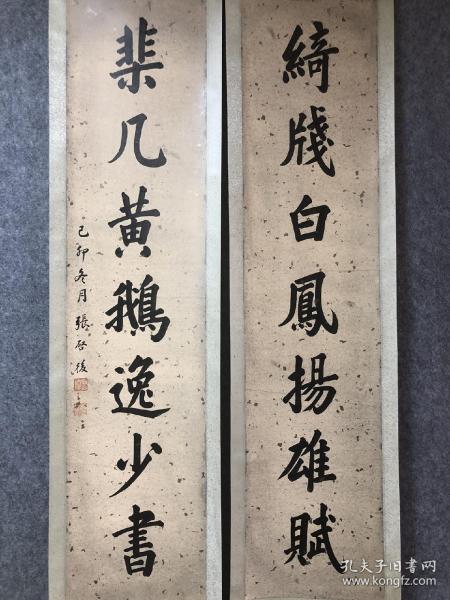 綺牋白鳳揚雄賦
棐几黄鵝逸少書
己卯冬月張啓後
孔夫子旧书网
www.kongfz.com